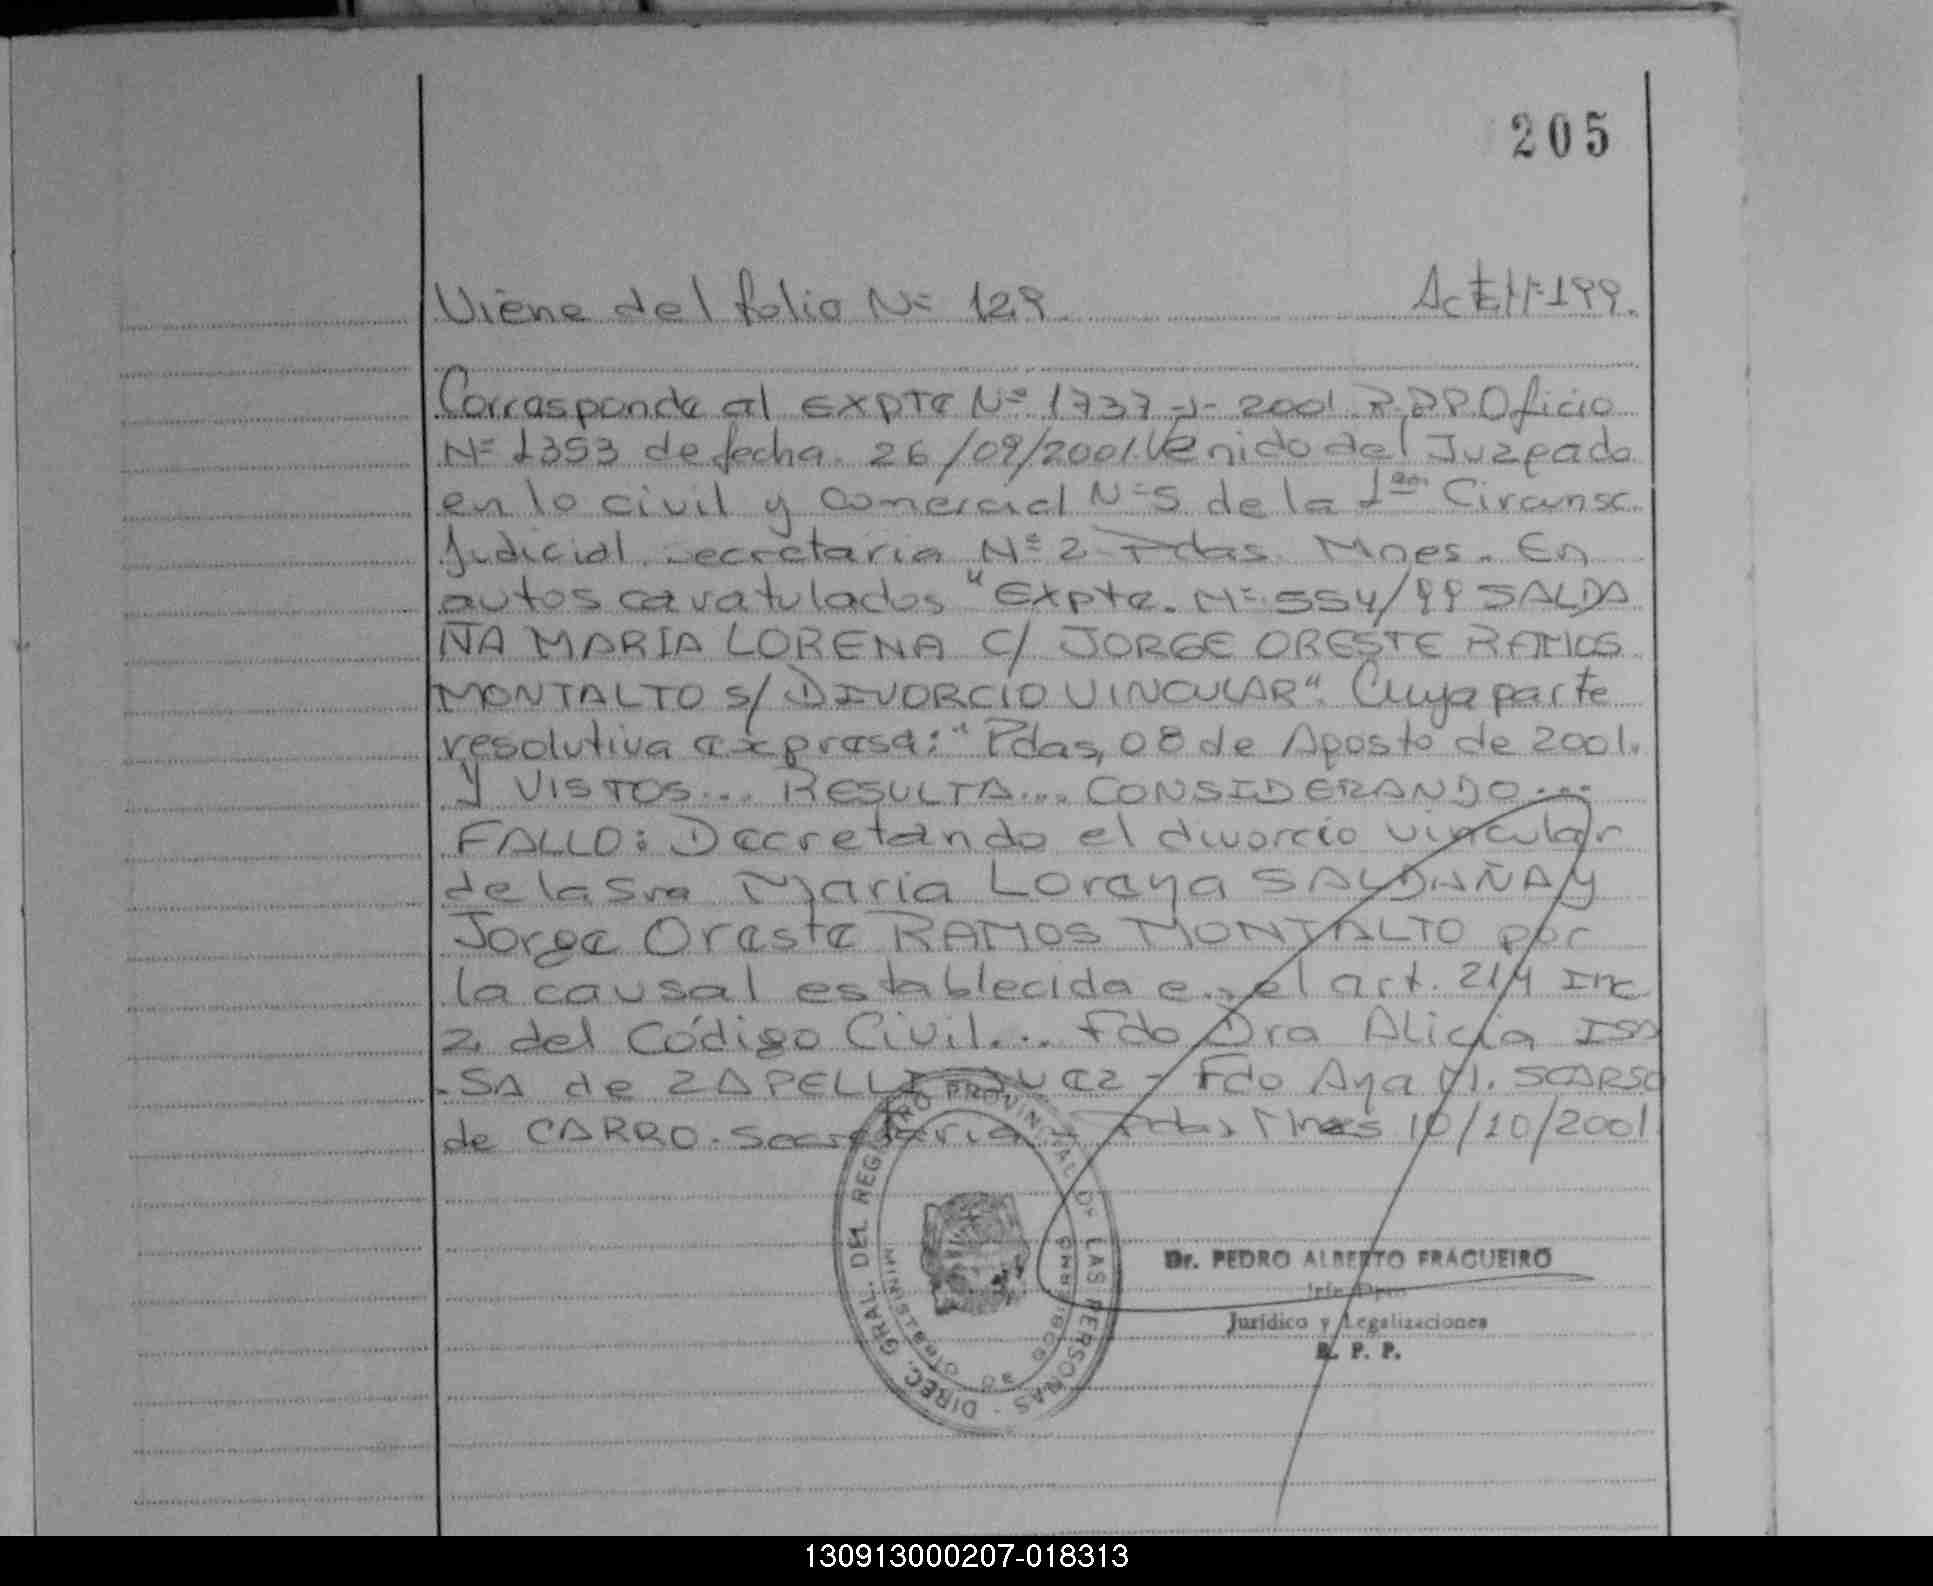 205
Viene del folio Nº 129 Act Nº 199.
Corresponde al EXPTE Nº 1737-J-2001 R.P.P. Oficio
Nº 1353 de fecha 26/09/2001. Venido del Juzgado
en lo civil y comercial Nº 5 de la 1era Circunsc.
Judicial. Secretaria Nº 2 Pdas. Mnes. En
autos caratulados "Expte. Nº 554/99 SALDA
ÑA MARIA LORENA C/ JORGE ORESTE RAMOS
MONTALTO S/ DIVORCIO VINCULAR". Cuya parte
resolutiva expresa: "Pdas, 08 de Agosto de 2001.
Y VISTOS... RESULTA... CONSIDERANDO...
FALLO: Decretando el divorcio vincular
de la Sra Maria Lorena SALDAÑA y
Jorge Oreste RAMOS MONTALTO por
la causal establecida en el art. 214 Inc
2, del Código Civil... Fdo Dra Alicia ISA
-SA de ZAPELLI JUEZ - Fdo M. SCARSO
de CARRO. Secretaria - Pdas Mnes 10/10/2001
DIREC. GRAL. DEL REGISTRO PROVINCIAL DE LAS PERSONAS
MINISTERIO DE GOBIERNO
Dr. PEDRO ALBERTO FRAGUEIRO
Jefe Dpto
Jurídico y Legalizaciones
R. P. P.
130913000207-018313